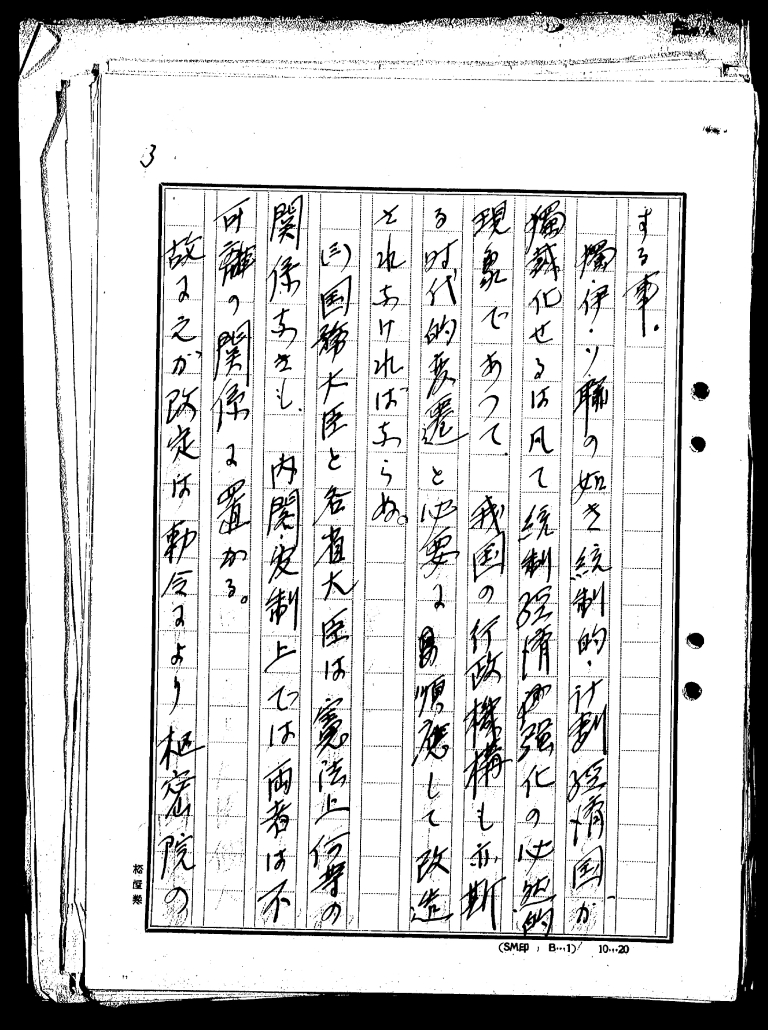 3
する事.
獨・伊・ソ聯の如き統制的・計劃経済国が
獨裁化せるは凡て統制経済強化の必然的
現象であつて、我国の行政機構も亦斯
る时代的変遷と必要に順應して改造
されなければならぬ。
(三)国務大臣と各省大臣は憲法上何等の
関係なきも、内閣官制上では両者は不
可離の関係に置かる。
故に之が改定は勅令により枢密院の
(SM印 ; B…1) 10…20